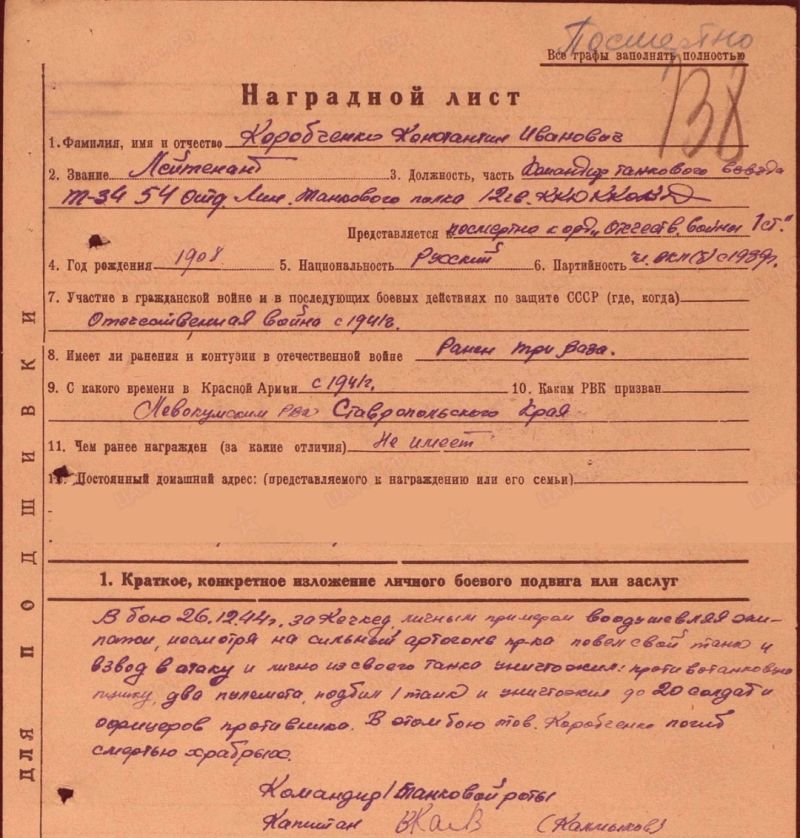 Посмертно
Все графы заполнять полностью
738
Наградной лист
1. Фамилия, имя и отчество Коробченко Константин Иванович
2. Звание Лейтенант 3. Должность, часть Командир танкового взвода
Т-34 54 Отд Лин. Танкового полка 12 гв.
Представляется к посмертно к орд „Отечеств. войны 1 ст."
4. Год рождения 1908 5. Национальность Русский 6. Партийность ч. ВКП(б) с 1939г.
7. Участие в гражданской войне и в последующих боевых действиях по защите СССР (где, когда)
Отечественная война с 1941г.
8. Имеет ли ранения и контузии в отечественной войне Ранен три раза.
9. С какого времени в Красной Армии с 1941г. 10. Каким РВК призван
Левокумским РВК Ставропольского Края
11. Чем ранее награжден (за какие отличия) Не имеет
12. Постоянный домашний адрес: (представляемого к награждению или его семьи)
1. Краткое, конкретное изложение личного боевого подвига или заслуг
В бою 26.12.44г. за Кечкед, личным примером воодушевляя эки-
пажи, несмотря на сильный артогонь пр-ка повел свой танк и
взвод в атаку и лично из своего танка уничтожил: противотанковую
пушку, два пулемота, подбил 1 танк и уничтожил до 20 солдат и
офицеров противника. В этом бою тов. Коробченко погиб
смертью храбрых.
Командир 1 Танковой роты
Капитан (Калмыков)
ДЛЯ ПОДШИВКИ